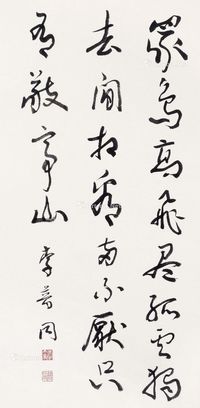 眾鳥高飛盡孤雲獨
去閒相看兩不厭只
有敬亭山 李普同